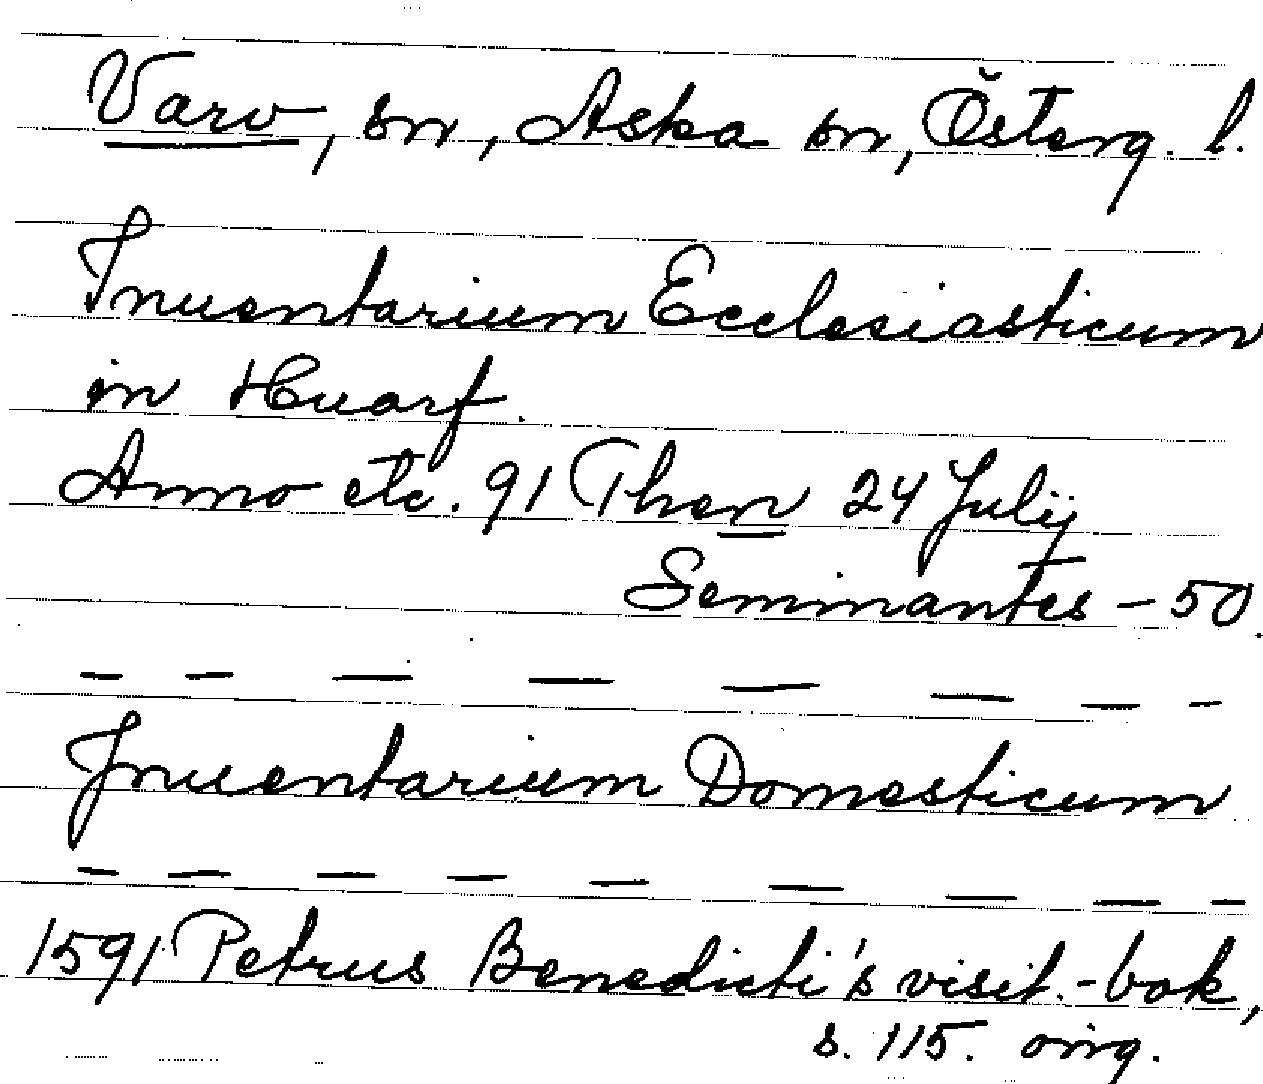 Varv, sn, Aska hr, Österg. l.
Inuentarium Ecclesiasticum
in Huarf.
Anno etc. 91 Then 24 Julij
Seminantes - 50.
— — — — — — — —
Inuentarium Domesticum
— — — — — — — — —
1591 Petrus Benedicti's visit.-bok,
s. 115. orig.